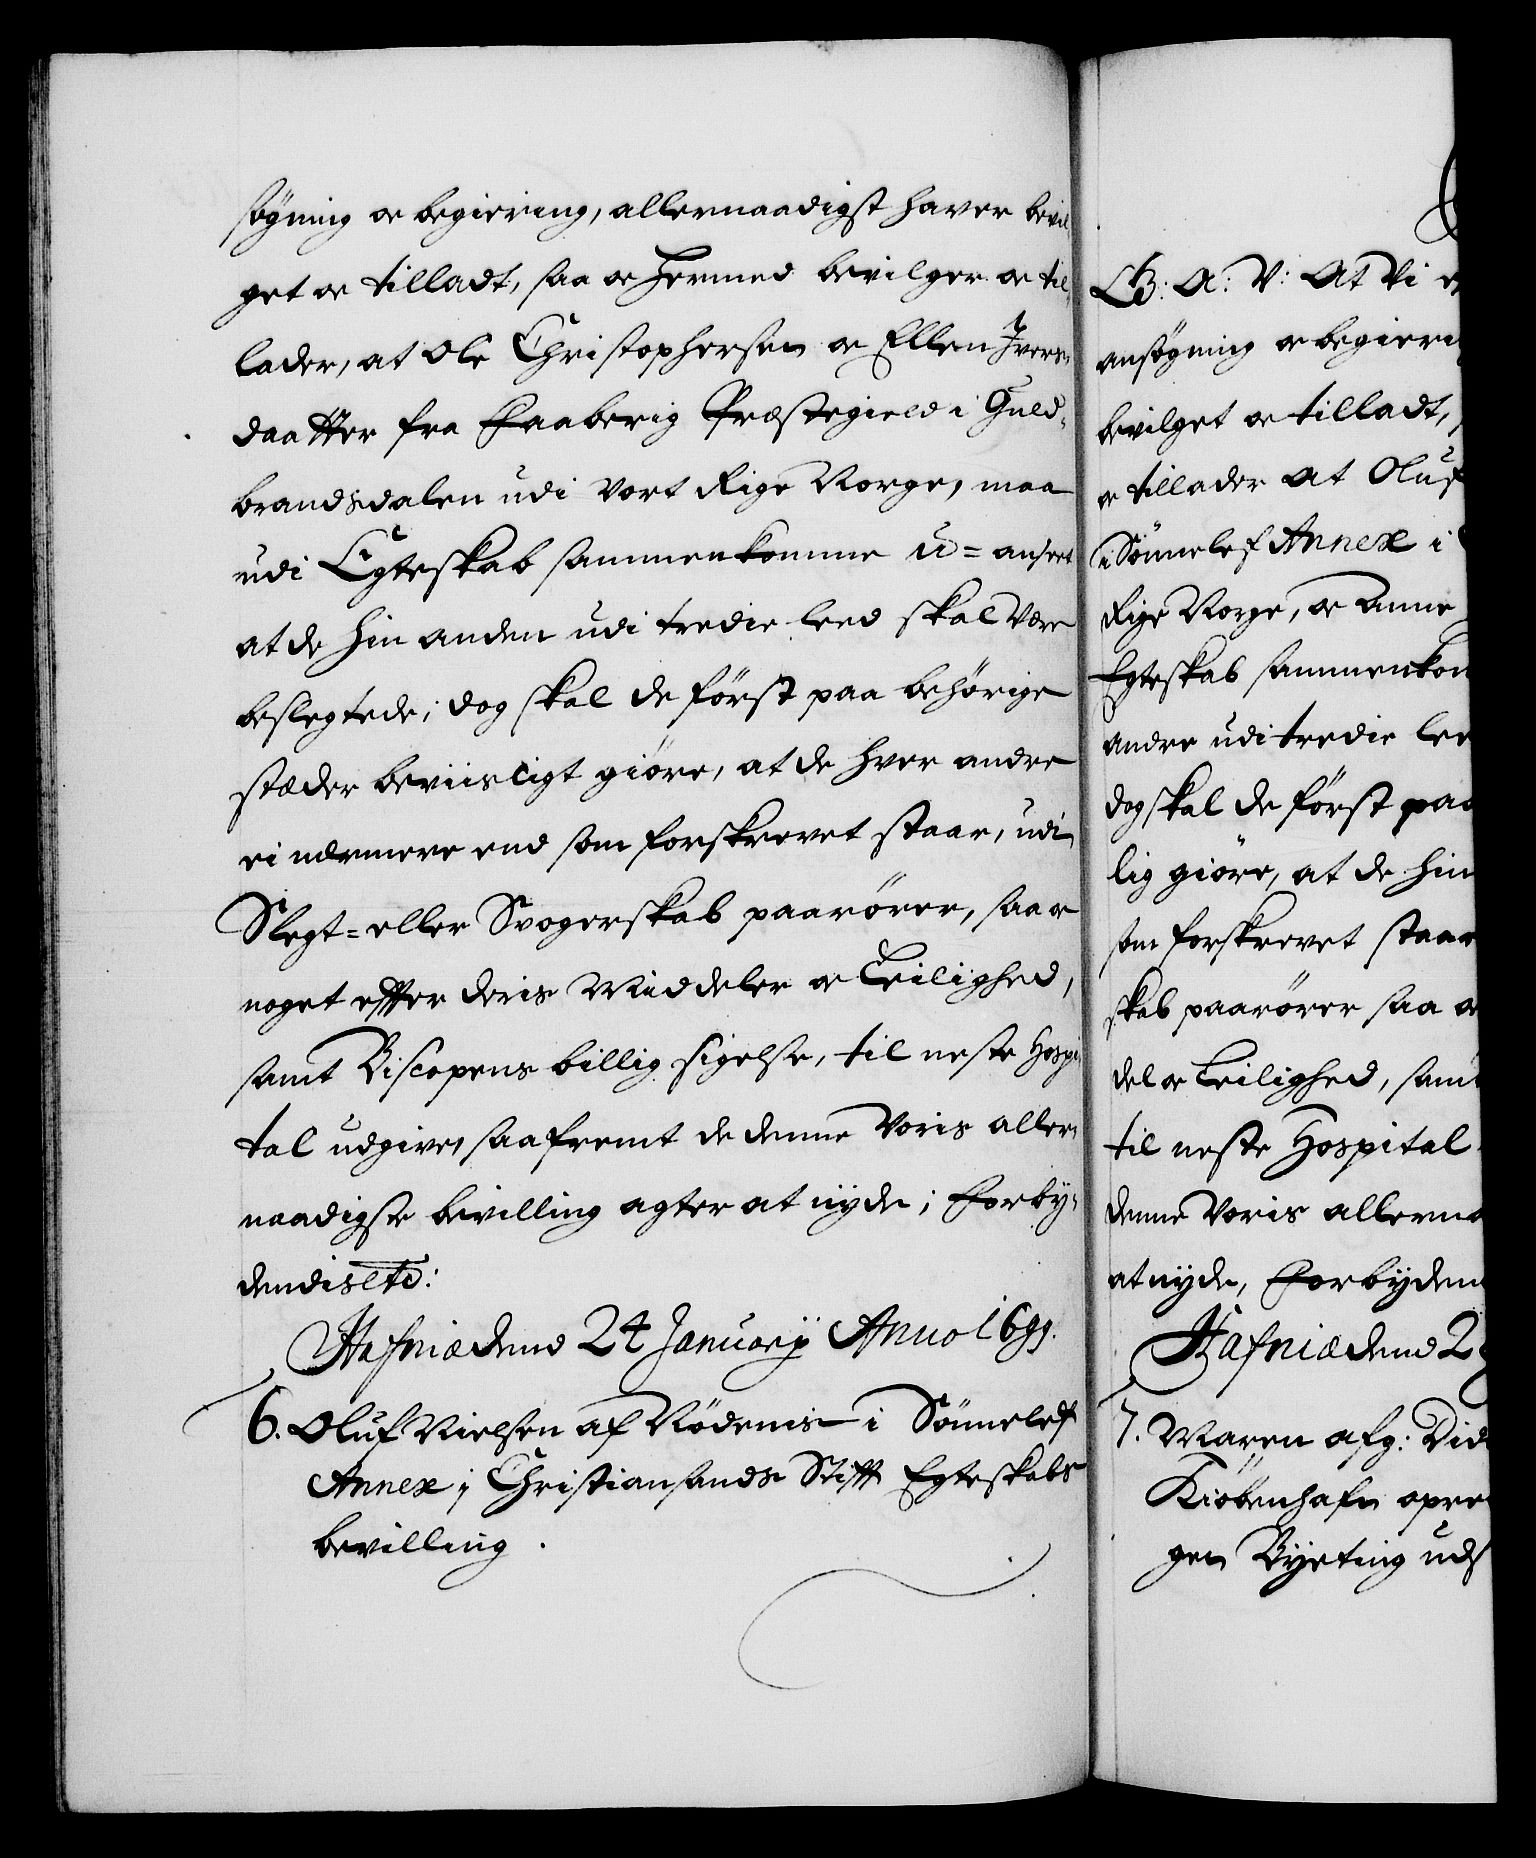 søgning oc begiering, allernaadigst haver bevil,
get oc tilladt, saa oc hermed bevilger oc til,
lader, at Ole Christophersen oc Ellen Ivers,
daatter fra Faaberig Præstegield i Guld,
brandsdalen udi Vort Rige Norge, maa
udi Egteskab sammenkomme u=anseet
at de hin anden udi tredie leed skal være
beslegtede; dog skal de först paa behörige
stæder beviisligt giöre, at de hver andre
ei nermere end som forskrevet staar, udi
Slegt= eller Svogerskab paarörer, saa oc
noget effter deris Middeler oc Leilighed,
samt Biscopens billig sigelse, til neste Hospi,
tal udgive, saafremt de denne Voris aller,
naadigste bevilling agter at nyde; Forby,
dendis etc:
Hafniæ dend 24 January Anno 1699.
6. Oluf Nielsen af Rödenis i Sönnelef
Annex i Christiansands Stifft Egteskabs
bevilling.
G: A: V: At Vi
ansøgning oc begieri
bevilget oc tilladt,
oc tillader at Oluf
i Sönnelef Annex i
Rige Norge, oc Anne
Egteskab sammenkom
andre udi tredie lee
dog skal de först paa
lig giöre, at de hin
som forskrevet staar
skab paarörer saa oc
del oc Leilighed, samt
til neste Hospital
denne Voris allerna
at nyde, Forbyden
Hafniæ dend 2
7. Maren afg: Did
Kiöbenhafn opre
gen Byeting uds